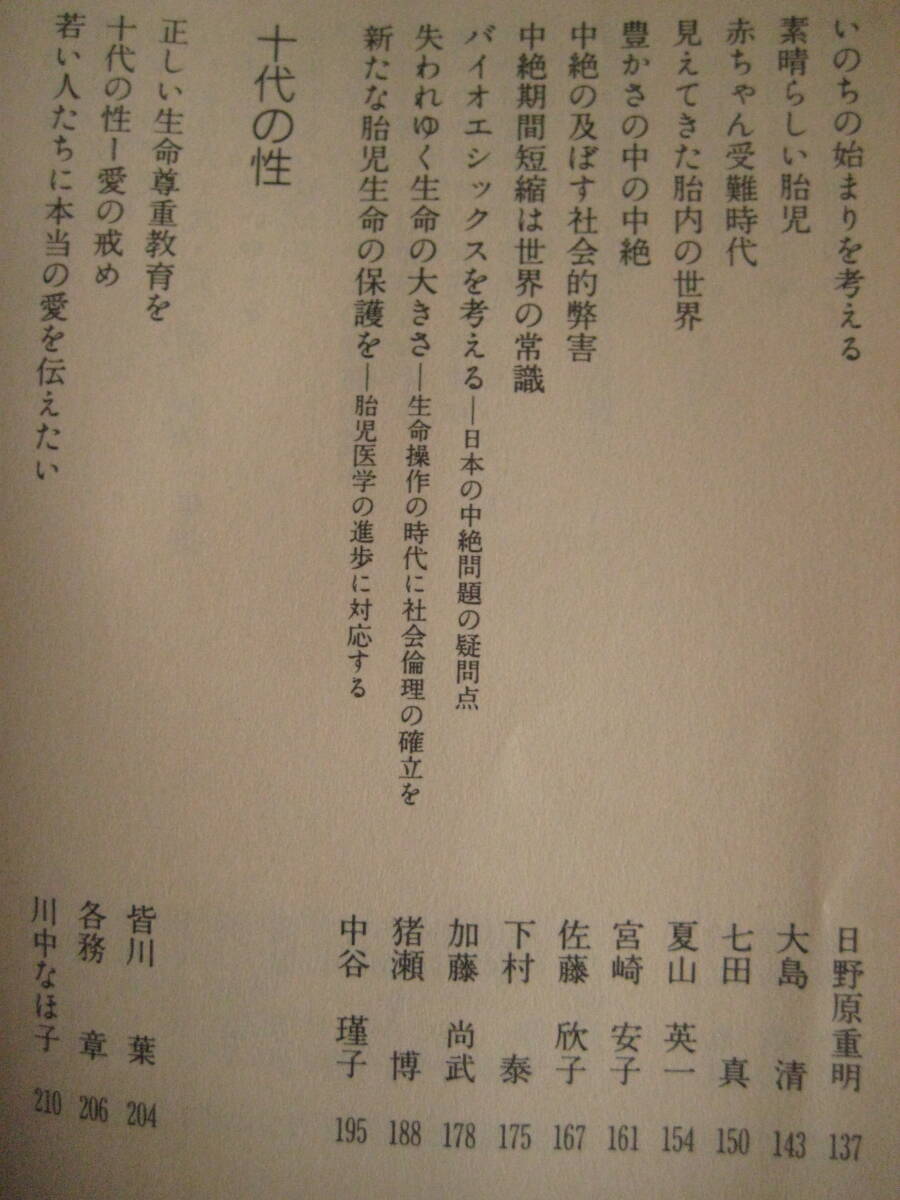 いのちの始まりを考える 日野原重明 137
素晴らしい胎児 大島 清 143
赤ちゃん受難時代 七田 真 150
見えてきた胎内の世界 夏山 英一 154
豊かさの中の中絶 宮崎 安子 161
中絶の及ぼす社会的弊害 佐藤 欣子 167
中絶期間短縮は世界の常識 下村 泰 175
バイオエシックスを考える―日本の中絶問題の疑問点 加藤 尚武 178
失われゆく生命の大きさ―生命操作の時代に社会倫理の確立を 猪瀬 博 188
新たな胎児生命の保護を―胎児医学の進歩に対応する 中谷 瑾子 195
十代の性
正しい生命尊重教育を 皆川 葉 204
十代の性―愛の戒め 各務 章 206
若い人たちに本当の愛を伝えたい 川中なほ子 210